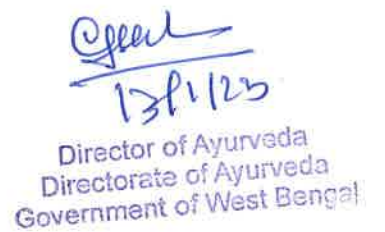 13/1/23
Director of Ayurveda
Directorate of Ayurveda
Government of West Bengal